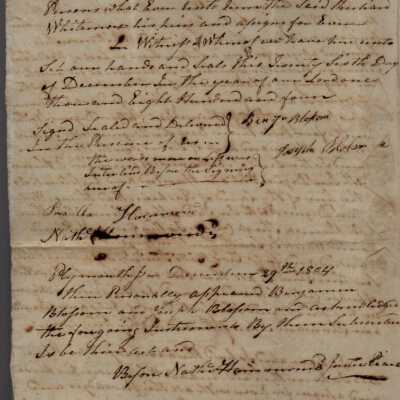 Persons what Ever unto him the Said
Whitmore his heirs and assigns for Ever
In Witness Whereof we have hereunto
Set our hands and Seals this Twenty Sixth Day
of December In the year of our Lord one
thousand Eight Hundred and four
Signd Sealed and Delivered
In the Presence of us
the words
Interlined Before the Signing
Benjn Blossom
Joseph Blossom
Hammond
Nathl Hammond
Plymouth ss December 29th 1804
then Personally appeared Benjamin
Blossom and Joseph Blossom and acknowledged
the foregoing Instrument By them Subscribed
To be their act and
Before Nathl Hammond Justice Peace